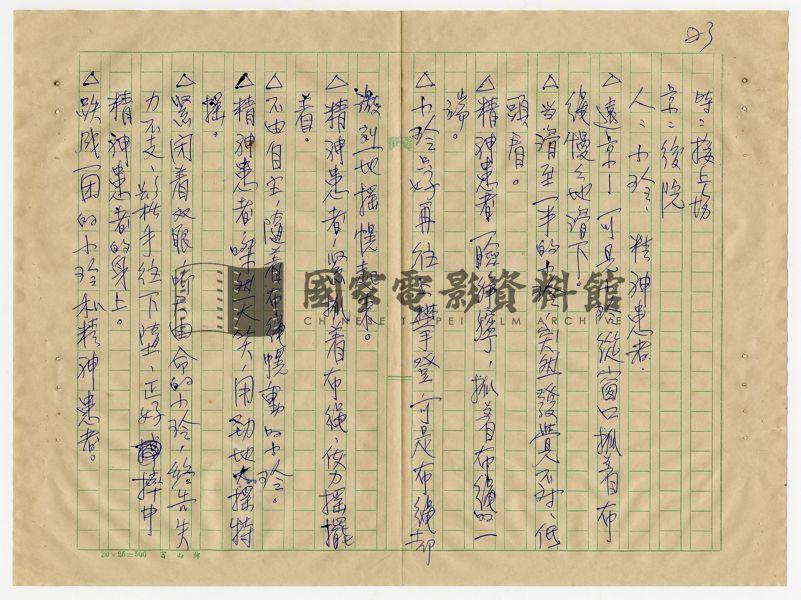 23
時：接上場
景：後院
人：小玲、精神患者
△遠景—可見小玲從窗口抓着布
繩慢慢地滑下。
△当滑至一半的小玲突然發覺不对，低
頭看。
△精神患者一臉狰獰，抓着布繩的一
端。
△小玲只好再往上攀登，可是布繩却
激烈地摇幌起來。
△精神患者，緊抓着布繩，使力摇擺
着。
△不由自主，隨着布繩幌動的小玲。
△精神患者嘩然大笑，用劲地大摇特
摇。
△緊闭着双眼，嘀咕由命的小玲，終告失
力不支，鬆手往下墮，正好摔中
精神患者的身上。
△跌成一团的小玲和精神患者。
國家電影資料館
CHINESE TAIPEI FILM ARCHIVE
20×25=500